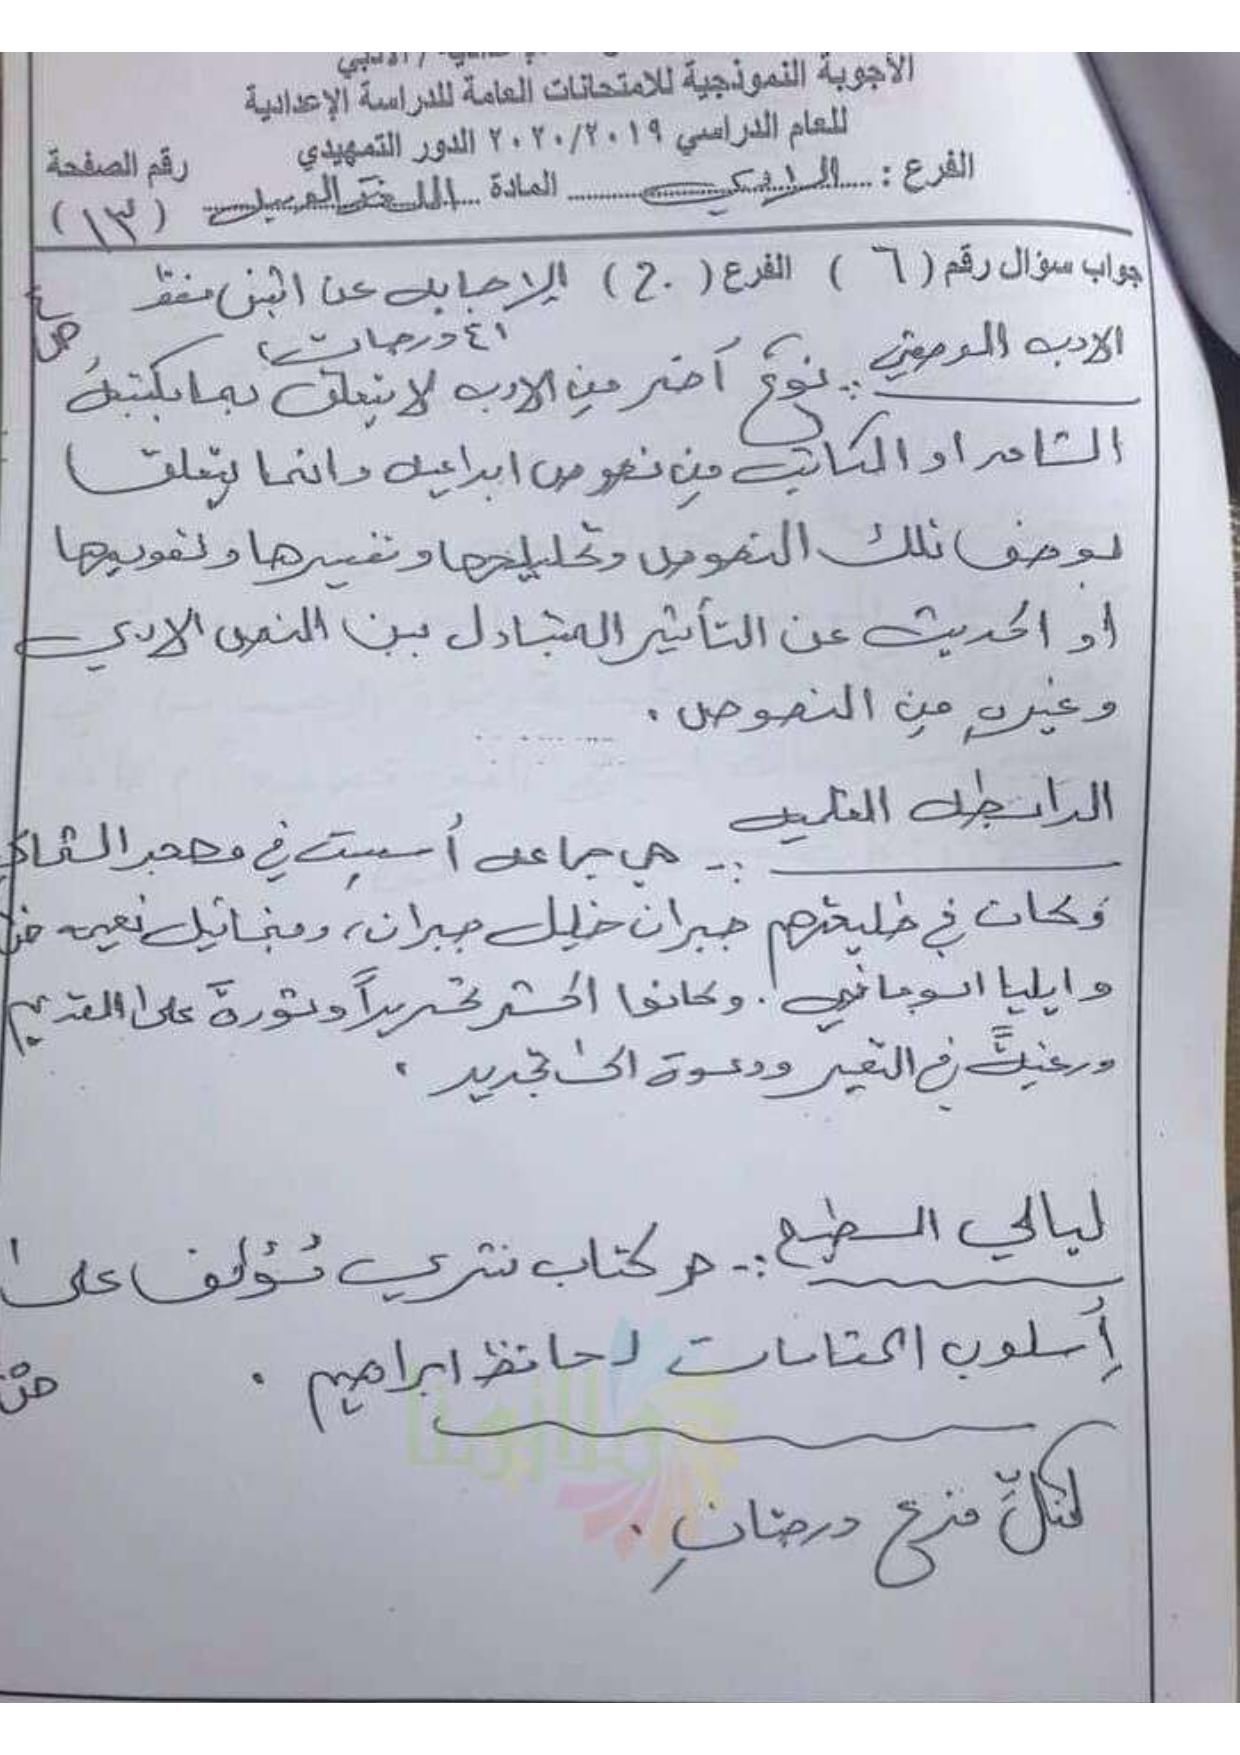 الأجوبة النموذجية للامتحانات العامة للدراسة الإعدادية
للعام الدراسي ٢٠٢٠/٢٠١٩ الدور التمهيدي
الفرع : المادة اللغة العربية رقم الصفحة
(١٣)
جواب سؤال رقم ( ٦ ) الفرع ( ج ) الإجابة عن اثنين فقط
(٤ درجات)
الادب الوصفي :- نوع آخر من الادب لا يتعلق بما يكتبهُ
الشاعر او الكاتب من نصوص ابداعية وانما يتعلق
بوصف تلك النصوص وتحليلها وتفسيرها وتقويمها
أو الحديث عن التأثير المتبادل بين النص الادبي
وغيرهِ من النصوص .
الرابطة القلمية :- هي جماعة أُسست في مهجر الشمالي
وكان في طليعتهم جبران خليل جبران، وميخائيل نعيمه
وايليا ابو ماضي . وكانوا اكثر تحرراً وثورةً على القديم
ورغبةً في التغير ودعوة الى تجديد .
ليالي السطيح :- هو كتاب نثري مُؤلف على
أُسلوب المقامات لحافظ ابراهيم .
لكلِّ فرع درجتانِ .
ملازمنا